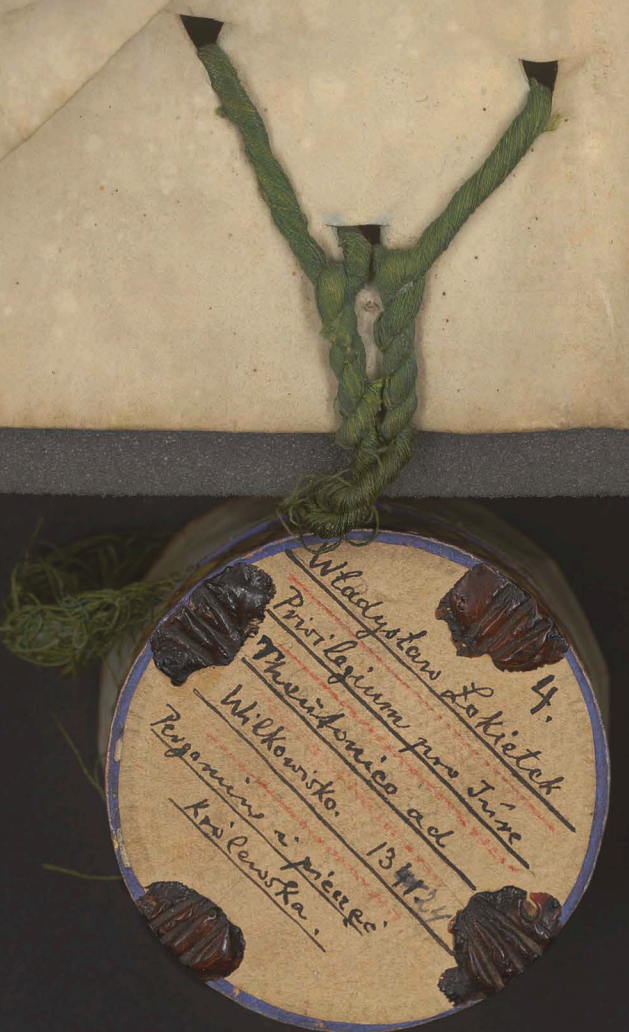 Władysław Łokietek
4.
Privilegium pro Iúre
Theutonico ad
Wilkowisko. 13
Pergamin i pieczęć
Królewska.